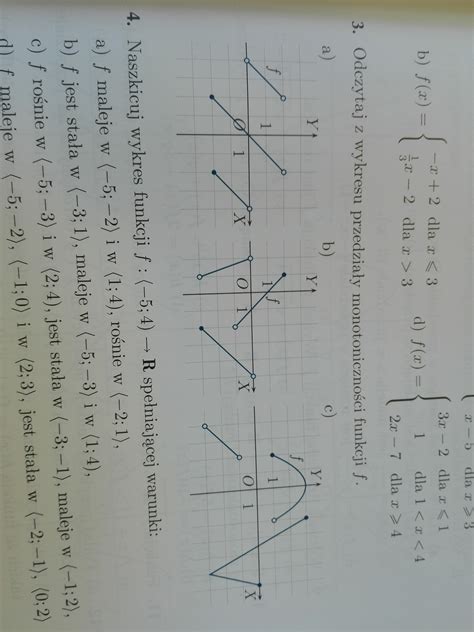 x − 5 dla x ⩾ 3
b) f(x) = { −x + 2 dla x ⩽ 3
1/3 x − 2 dla x > 3
d) f(x) = { 3x − 2 dla x ⩽ 1
1 dla 1 < x < 4
2x − 7 dla x ⩾ 4
3. Odczytaj z wykresu przedziały monotoniczności funkcji f.
a)
Y
f
1
O 1 X
b)
Y
1
f
O 1 X
c)
Y
f
1
O 1 X
4. Naszkicuj wykres funkcji f : ⟨−5; 4⟩ → R spełniającej warunki:
a) f maleje w ⟨−5; −2⟩ i w ⟨1; 4⟩, rośnie w ⟨−2; 1⟩,
b) f jest stała w ⟨−3; 1⟩, maleje w ⟨−5; −3⟩ i w ⟨1; 4⟩,
c) f rośnie w ⟨−5; −3⟩ i w ⟨2; 4⟩, jest stała w ⟨−3; −1⟩, maleje w ⟨−1; 2⟩,
d) f maleje w ⟨−5; −2⟩, ⟨−1; 0⟩ i w ⟨2; 3⟩, jest stała w ⟨−2; −1⟩, ⟨0; 2⟩